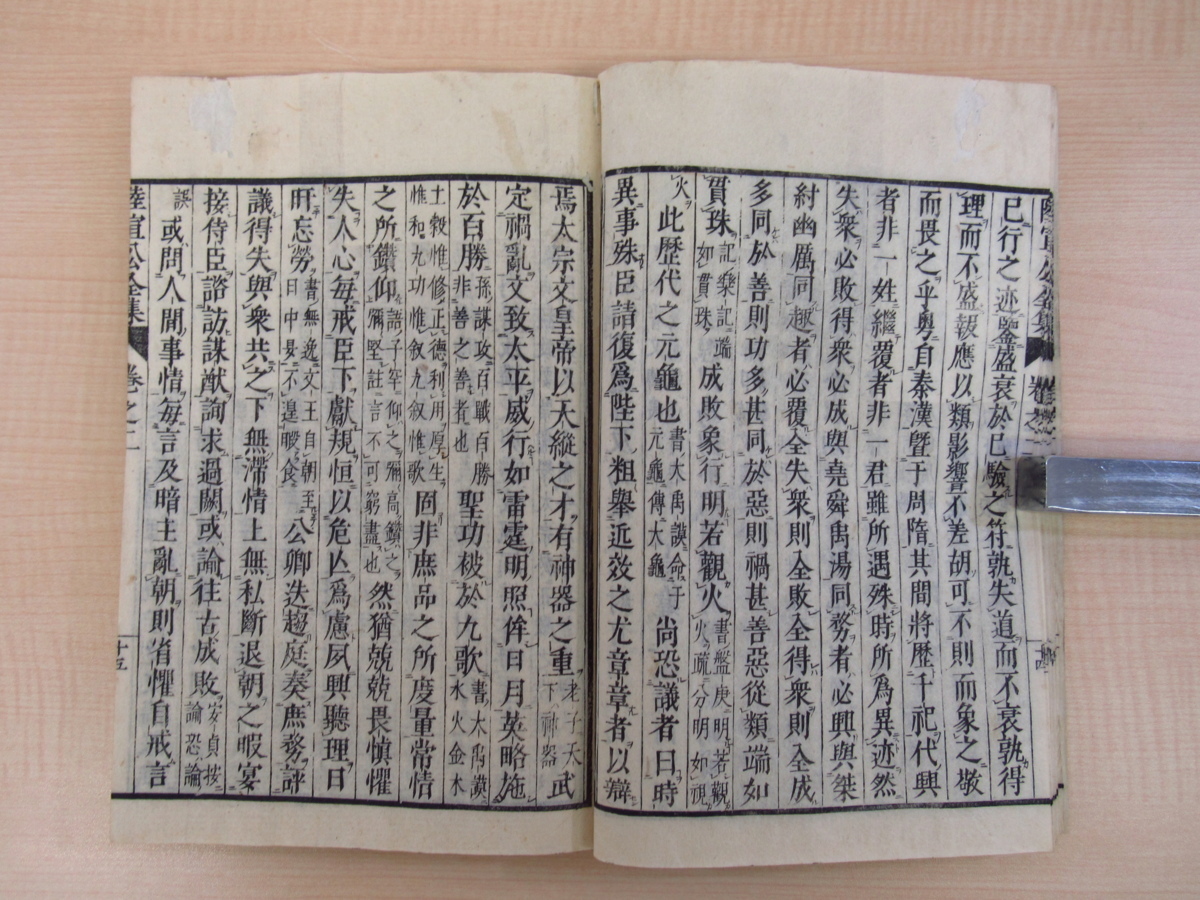 已行之迹鑒盛衰於已驗之符孰失道而不衰孰得
理而不盛報應以類影響不差胡可不則而象之敬
而畏之乎粤自秦漢曁于周隋其間將歷千祀代興
者非一姓繼覆者非一君雖所遇殊時所爲異迹然
失衆必敗得衆必成與堯舜禹湯同務者必興與桀
紂幽厲同趣者必覆全失衆則全敗全得衆則全成
多同於善則功多甚同於惡則禍甚善惡從類端如
貫珠記樂記端如貫珠成敗象行明若觀火書盤庚明若觀火疏分明如視
火此歷代之元龜也書大禹謨命于元龜傳大龜尚恐議者曰時
異事殊臣請復爲陛下粗舉近效之尤章章者以辯
焉太宗文皇帝以天縱之才有神器之重老子天下神器武
定禍亂文致太平威行如雷霆明照侔日月英略施
於百勝孫謀攻百戰百勝非善之善者也聖功被於九歌書大禹謨水火金木
土穀惟修正德利用厚生惟和九功惟叙九叙惟歌固非庶品之所度量常情
之所鑽仰語子罕仰之彌高鑽之彌堅註言不可窮盡也然猶兢兢畏愼懼
失人心每戒臣下獻規恒以危亾爲慮夙興聽理日
旰忘勞書無逸文王自朝至日中昃不遑暇食公卿迭趨庭奏庶務評
議得失與衆共之下無滯情上無私斷退朝之暇宴
接侍臣諮訪謀猷詢求過闕或論往古成敗安貞按論恐論
誤或問人間事情每言及暗主亂朝則省懼自戒言
陸宣公全集
卷之二
十五